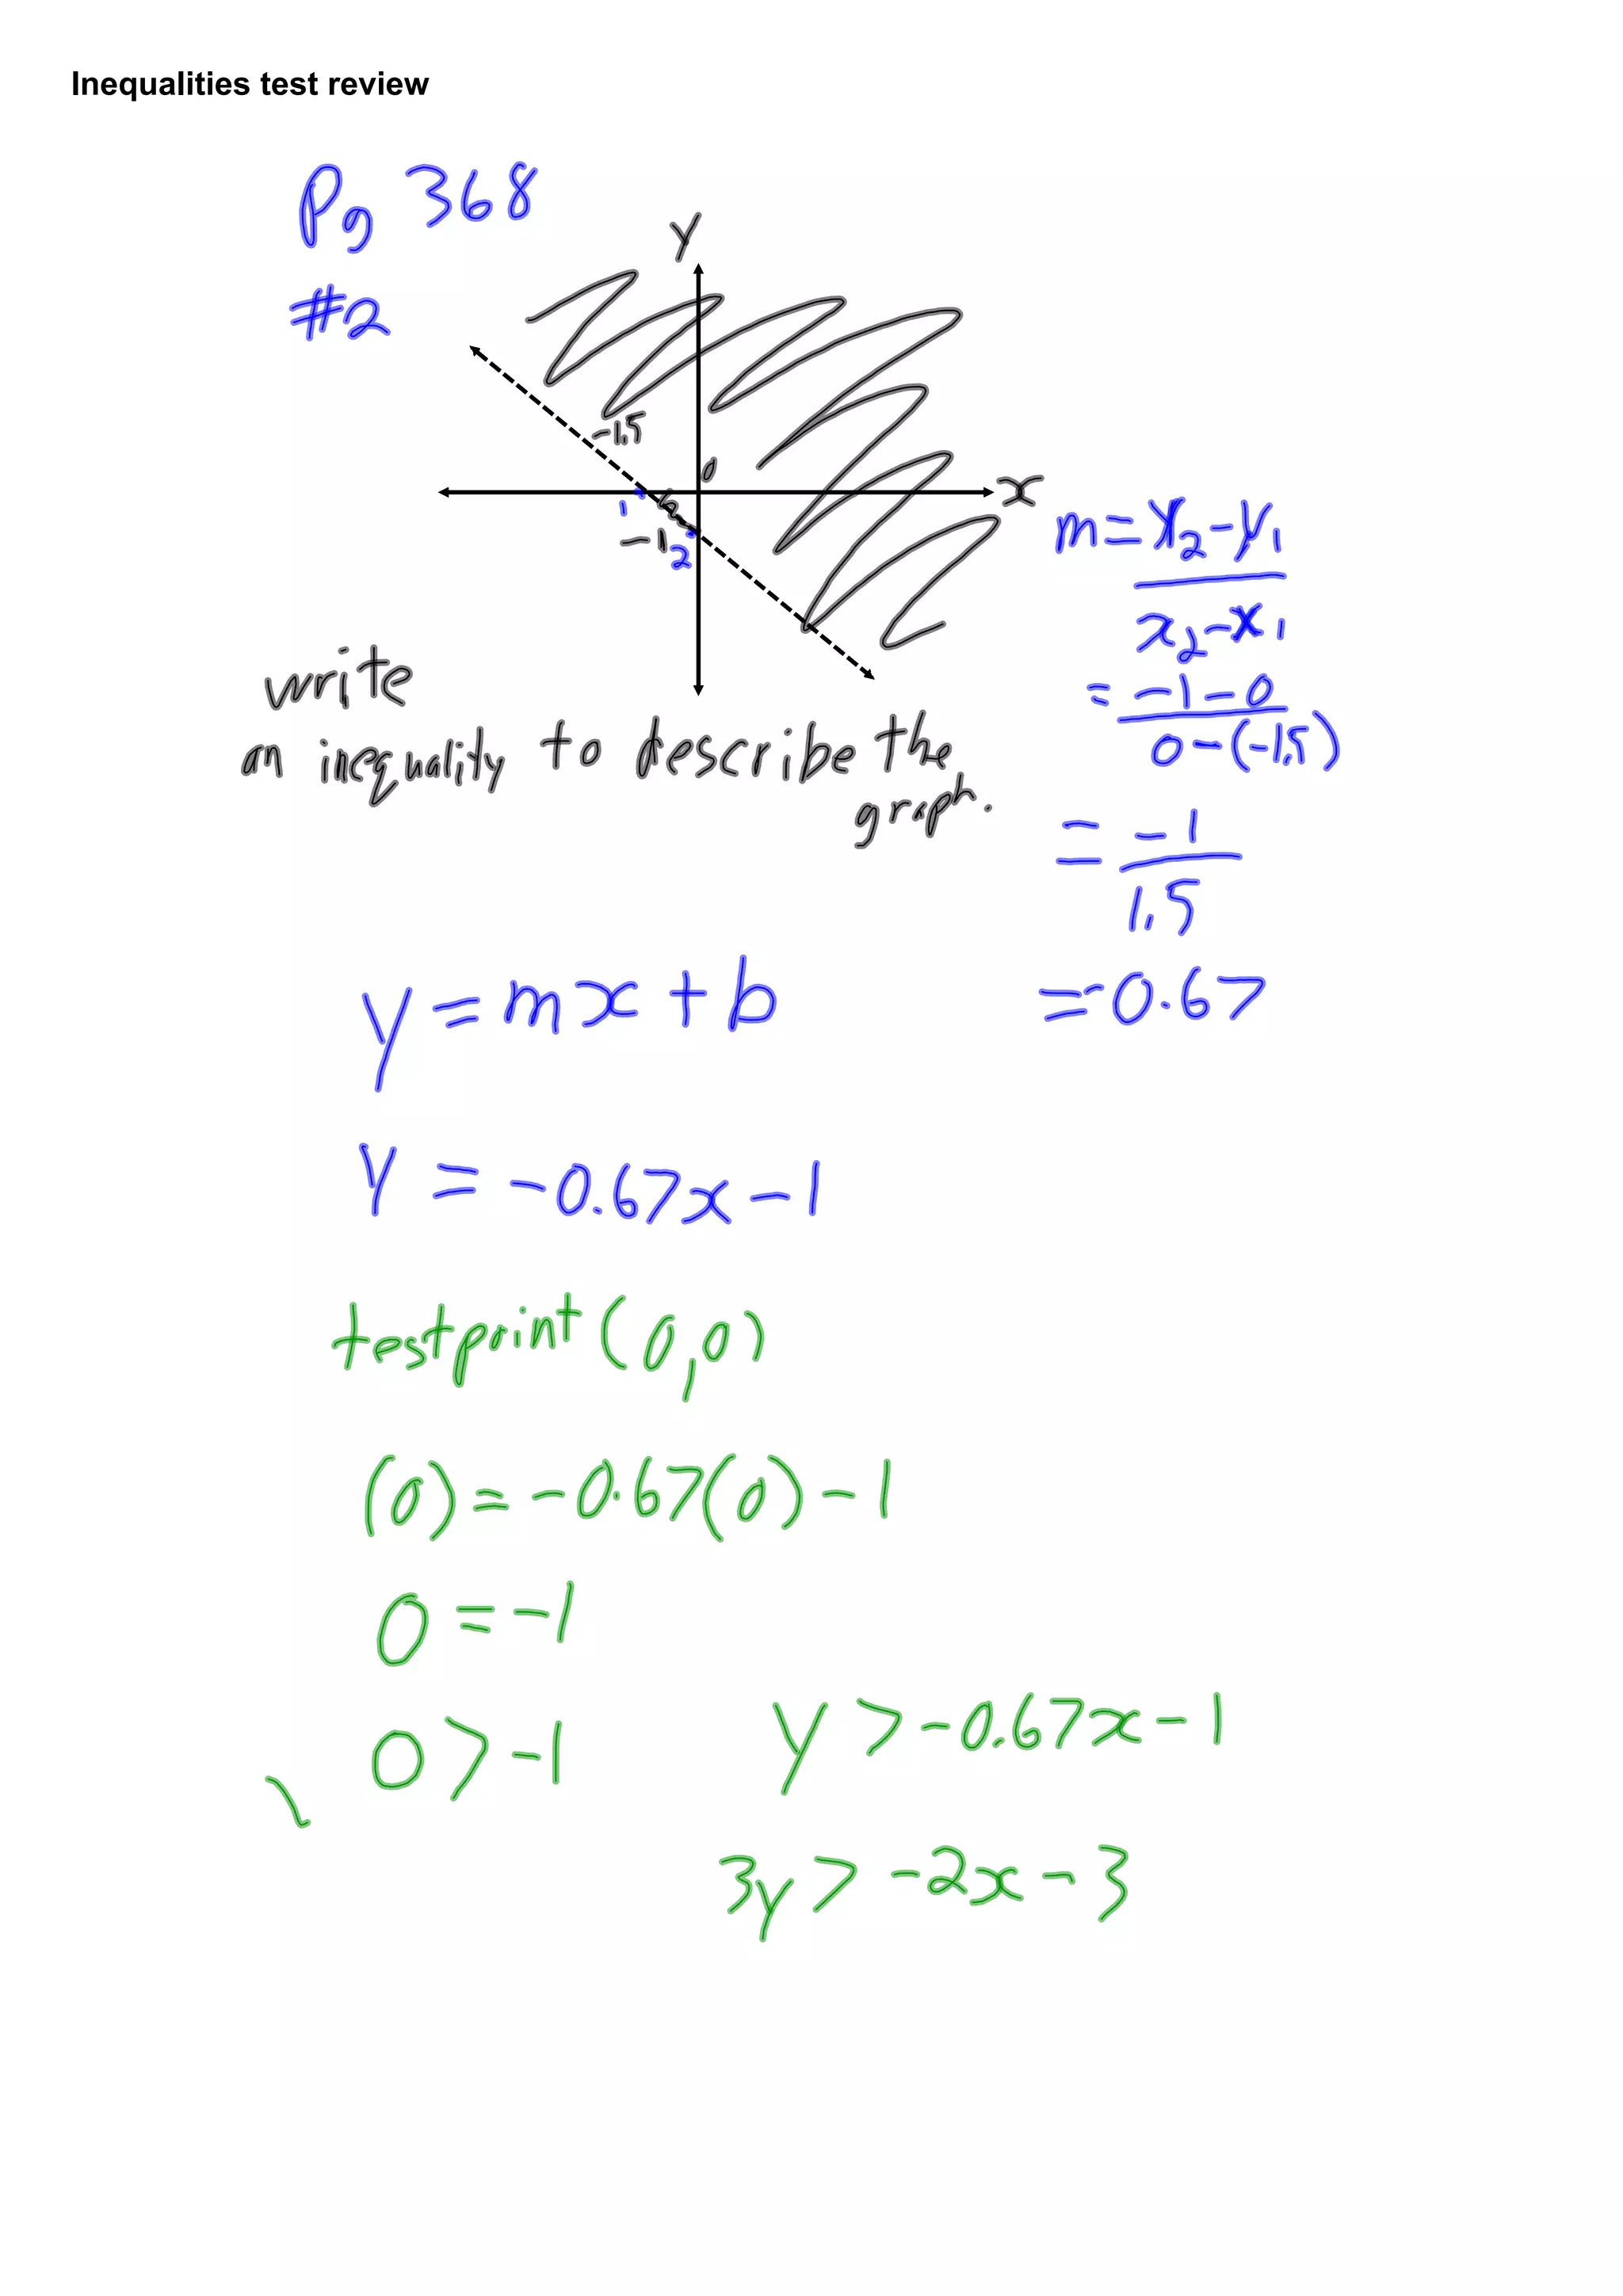 Inequalities test review
Pg 368
#2
y
-1.5
0
x
1
-1
2
m = y2 - y1
x2 - x1
= -1 - 0
0 - (-1.5)
= -1
1.5
= -0.67
write
an inequality to describe the
graph.
y = mx + b
y = -0.67x - 1
test point (0,0)
(0) = -0.67(0) - 1
0 = -1
0 > -1
y > -0.67x - 1
3y > -2x - 3